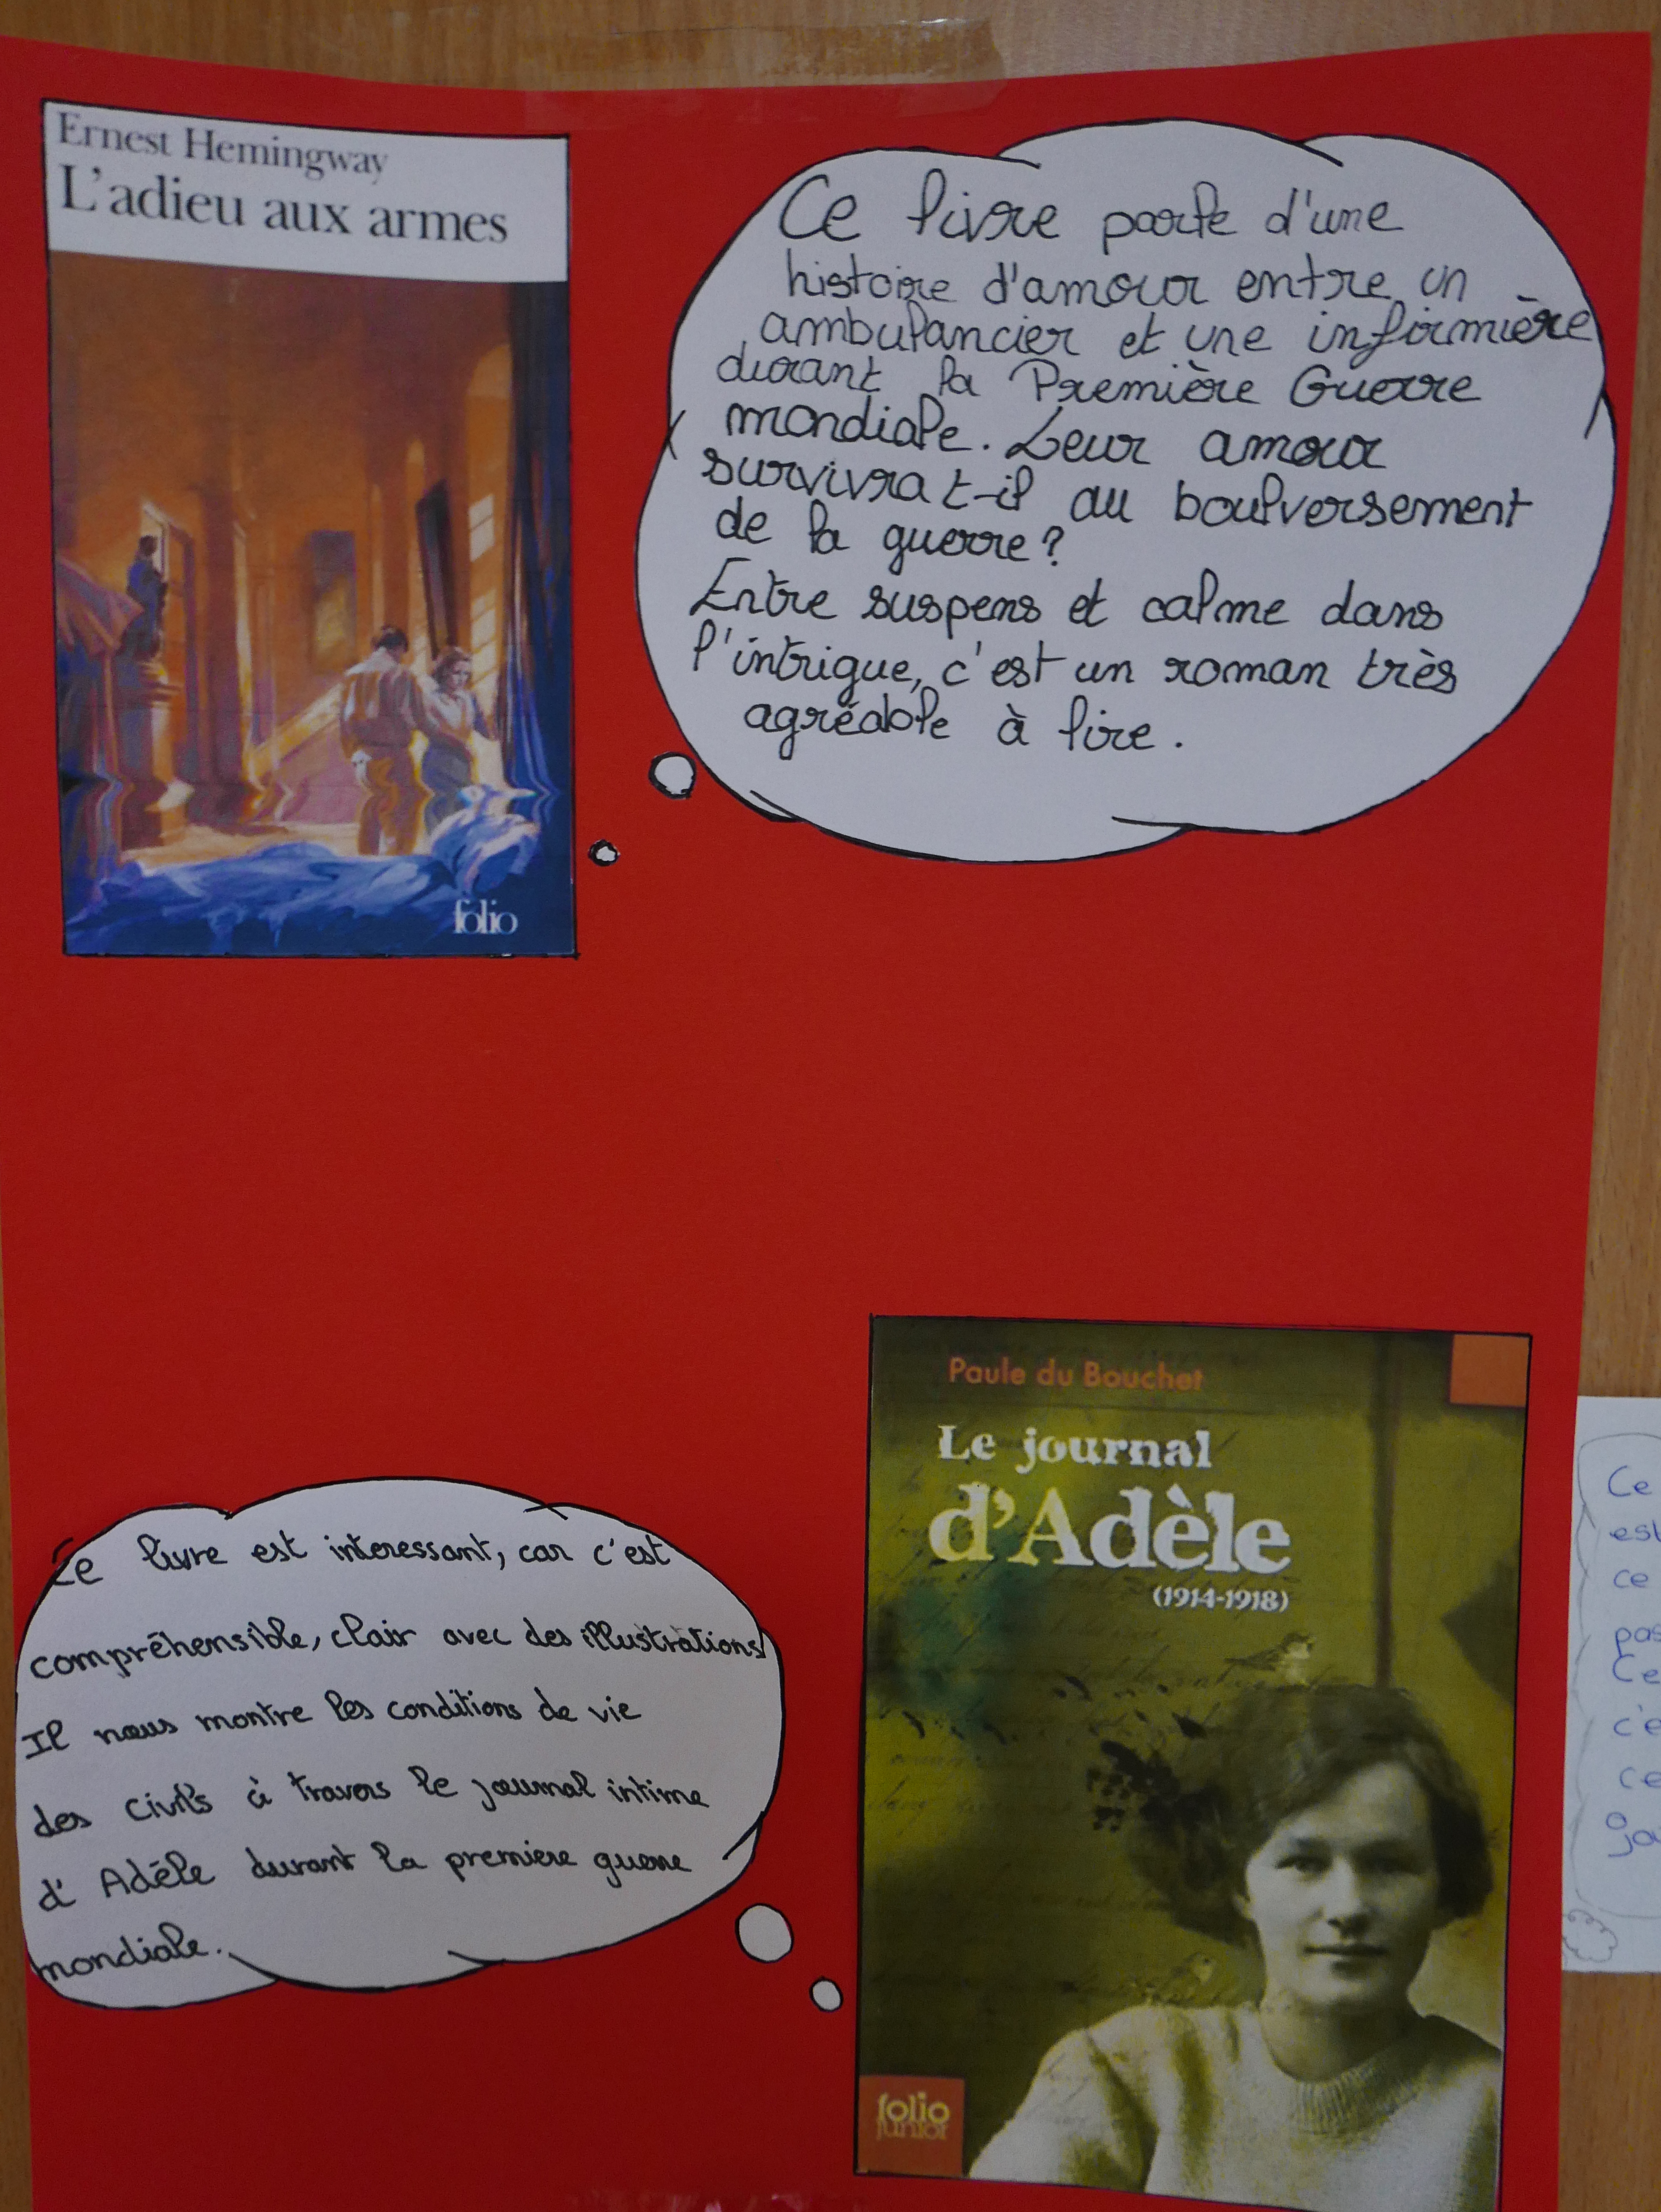 Ernest Hemingway
L'adieu aux armes
folio
Ce livre parle d'une
histoire d'amour entre un
ambulancier et une infirmière
durant la Première Guerre
mondiale. Leur amour
survivra t-il au boulversement
de la guerre?
Entre suspens et calme dans
l'intrigue, c'est un roman très
agréable à lire.
Ce livre est interessant, car c'est
compréhensible, clair avec des illustrations
Il nous montre les conditions de vie
des civils à travers le journal intime
d'Adèle durant la premiere guerre
mondiale.
Paule du Bouchet
Le journal
d'Adèle
(1914-1918)
folio
junior
Ce
est
ce
pas
Ce
c'e
ce